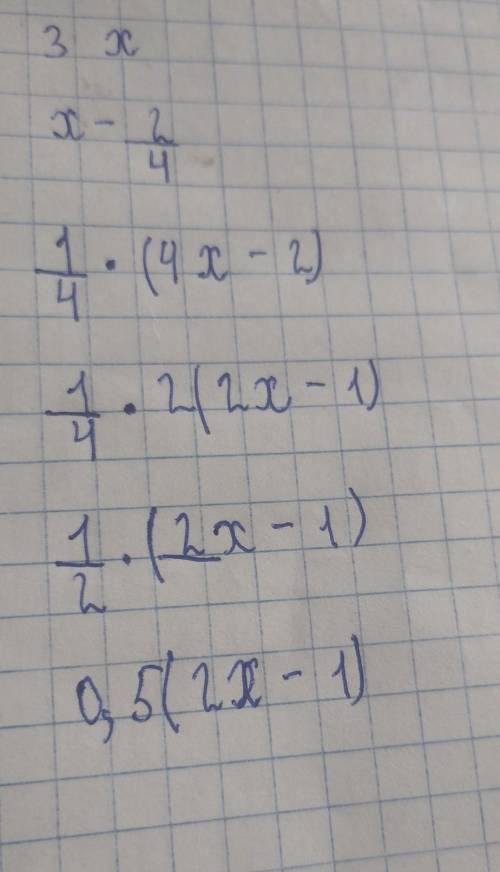 3 x
x - 2/4
1/4 · (4x - 2)
1/4 · 2(2x - 1)
1/2 · (2x - 1)
0,5(2x - 1)